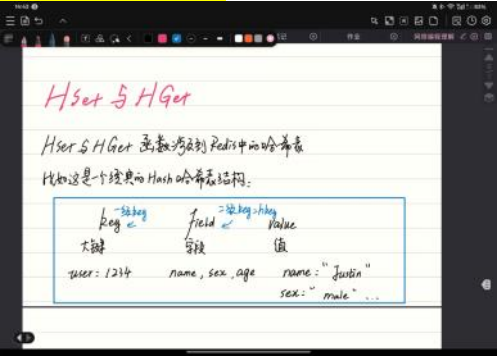 HSet与HGet
HSet与HGet 函数涉及到Redis中的哈希表
比如这是一个经典的Hash哈希表结构:
一级key 二级key=hkey
key field value
大键 字段 值
user: 1234 name, sex, age name: "Justin"
sex: "male" ...